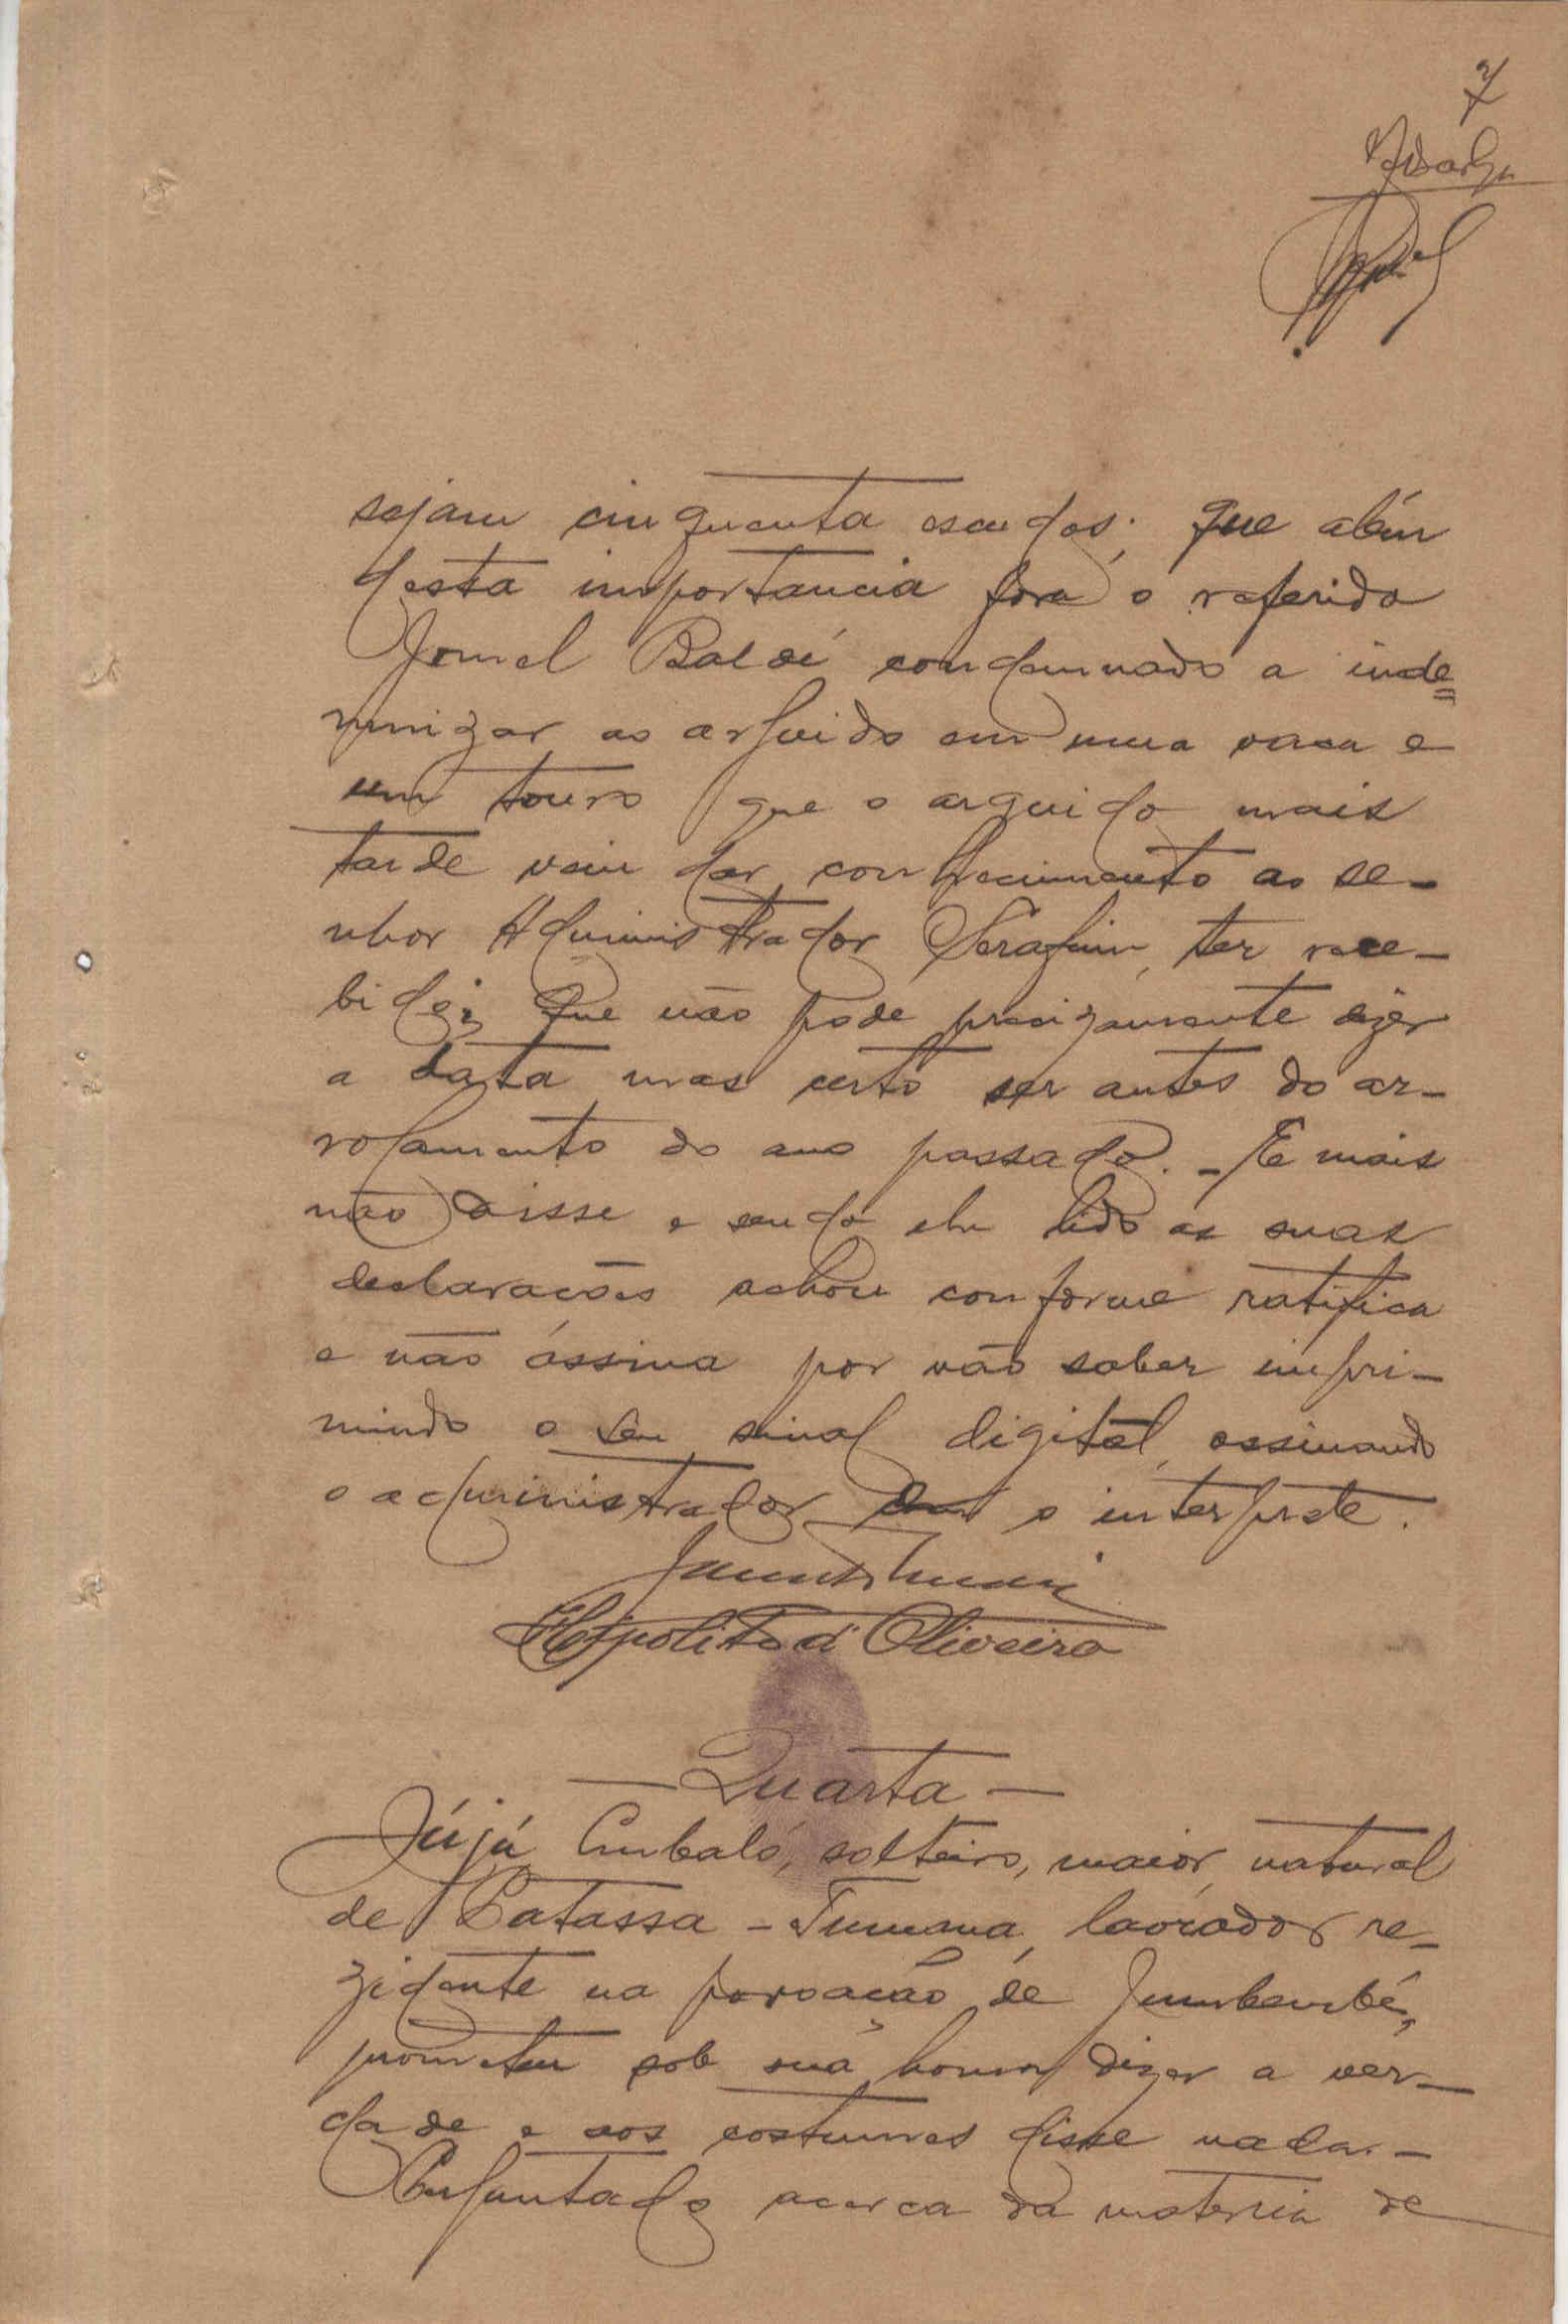 7
sejam cinquenta escudos; que além
desta importancia fora o referido
Jomel Baldé condemnado a inde=
mnizar ao arguido em uma vaca e
um touro que o arguido mais
tarde veiu dar conhecimento ao se-
nhor Administrador Serafim, ter rece-
bido; Que não pode precizamente dizer
a data mas certo ser antes do ar-
rolamento do ano passado. - E mais
não disse e sendo lhe lido as suas
declarações achou conforme ratifica
e não assina por não saber impri-
mindo o seu sinal digital, assinando
o administrador com o interprete.
Hipolito d'Oliveira
- Quarta -
Jújú Embaló, solteiro, maior, natural
de Patassa - Tumana, lavrador re-
zidente na povoação de Jumbembé,
prometeu sob sua honra dizer a ver-
dade e aos costumes disse nada. -
Perguntado acerca da materia de